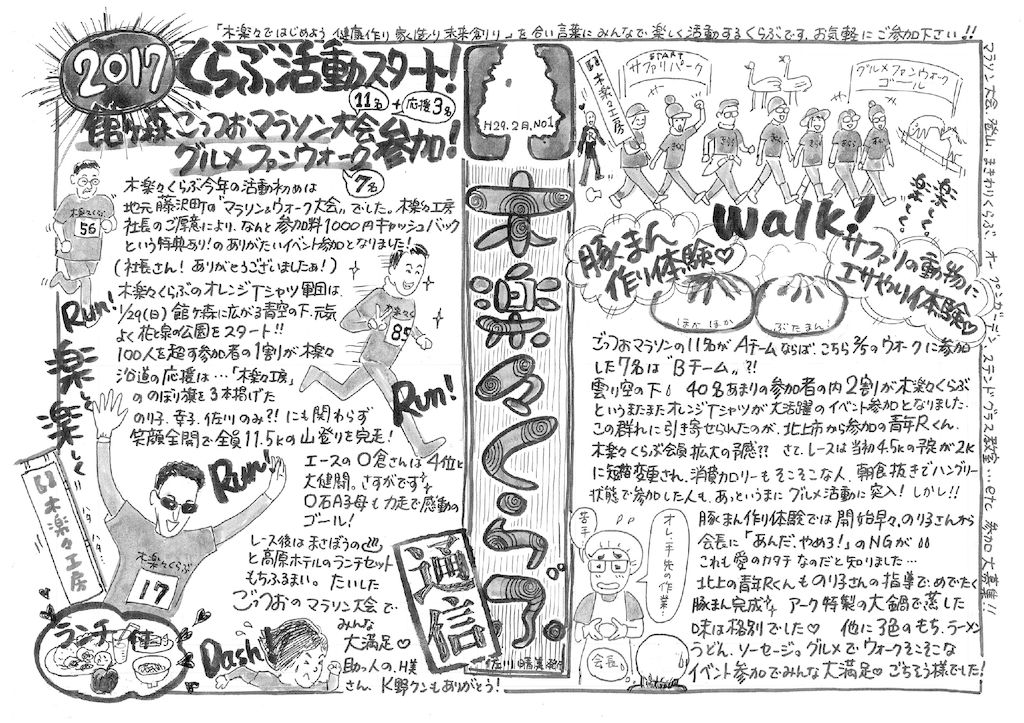 「木楽々ではじめよう 健康作り 家創り 未来創り」を合い言葉にみんなで楽しく活動するくらぶです。お気軽にご参加下さい!!
2017 くらぶ活動スタート!
11名+応援3名
館ヶ森ごっつおマラソン大会
グルメファンウォーク参加!
7名
木楽々くらぶ今年の活動初めは
地元藤沢町の〝マラソン&ウォーク大会〟でした。木楽々工房
社長のご厚意により、なんと参加料1000円キャッシュバック
という特典あり!のありがたいイベント参加となりました!
(社長さん!ありがとうございましたぁ!)
木楽々くらぶのオレンジTシャツ軍団は、
1/29(日)館ヶ森に広がる青空の下、元気
よく花と泉の公園をスタート!!
100人を超す参加者の1割が木楽々
沿道の応援は…「木楽々工房」
ののぼり旗を3本掲げた
のり子、幸子、佐川のみ?!にも関わらず
笑顔全開で全員11.5kの山登りを完走!
エースの〇倉さんは4位と
大健闘。さすがです
〇石A子母も力走で感動の
ゴール!
レース後はまさぼうの♨
と高原ホテルのランチセット
もちふるまい。たいした
ごっつおのマラソン大会で
みんな
大満足♡
助っ人の、H僕
さん、K野クンもありがとう!
木楽々くらぶ
56
Run!
木楽々
85
Run!
楽しく
楽しく
Run!
木楽々工房
ハタ ハタ
木楽々くらぶ
17
ランチ付
Dash!
H29.2月.NO1
木楽々くらぶ
通信
佐川
START
サファリパーク
グルメファンウォーク
ゴール
木楽々工房
楽しく〜
楽しく〜
walk!
豚まん
作り体験♡
サファリの動物に
エサやり体験♡
ほかほか
ぶたまん!
ごっつおマラソンの11名がAチームならば、こちら2/5のウォークに参加
した7名は〝Bチーム〟?!
曇り空の下、40名あまりの参加者の内2割が木楽々くらぶ
というまたまたオレンジTシャツが大活躍のイベント参加となりました。
この群れに引き寄せらんたのが、北上市から参加の青年Rくん。
木楽々くらぶ会員拡大の予感?? さて、レースは当初4.5kの予定が2k
に短縮変更され、消費カロリーもそこそこな人、朝食抜きでハングリー
状態で参加した人も、あっというまにグルメ活動に突入!しかし!!
豚まん作り体験では開始早々、のり子さんから
会長に「あんだ、やめろ!」のNGが
これも愛のカタチなのだと知りました…
北上の青年Rくんものり子さんの指導で、めでたく
豚まん完成 アーク特製の大鍋で蒸した
味は格別でした♡ 他に3色のもち、ラーメン
うどん、ソーセージ。グルメでウォークそこそこな
イベント参加でみんな大満足♡ごちそう様でした!
オレ、手先の作業
苦手
会長
マラソン大会、登山、まきわりくらぶ、オープンガーデン、ステンドグラス教室…etc 参加者大募集!!